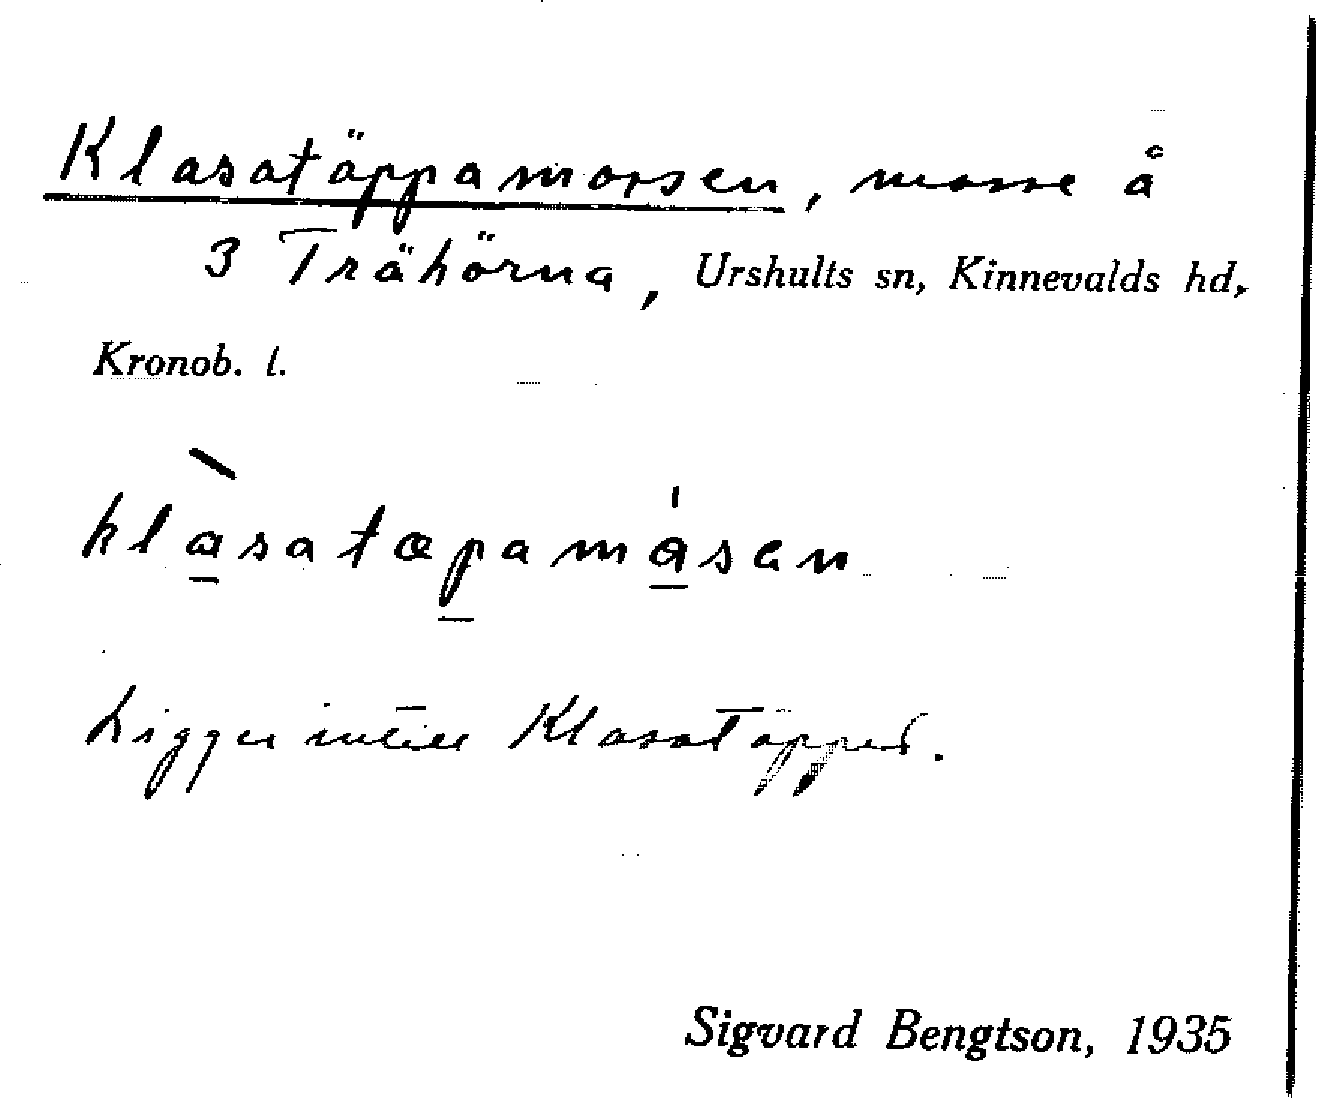 Klasatäppamossen, mosse å
3 Trähörna, Urshults sn, Kinnevalds hd,
Kronob. l.
klàsatæpamåsen
Ligger intill Klasatäppet.
Sigvard Bengtson, 1935